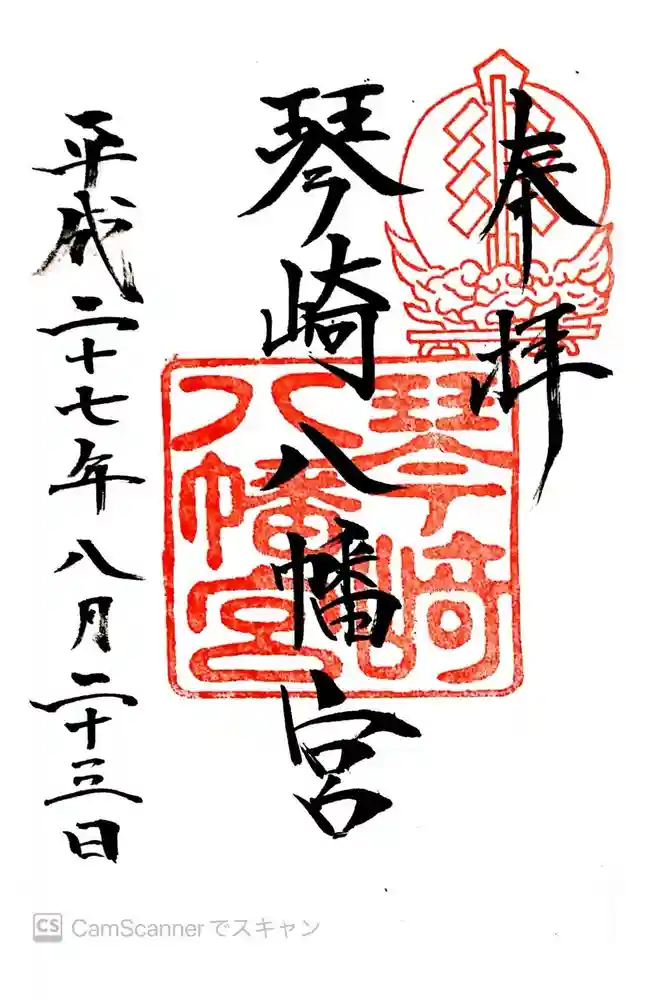 奉拝
琴崎八幡宮
琴崎
八幡宮
平成二十七年八月二十三日
CS CamScannerでスキャン